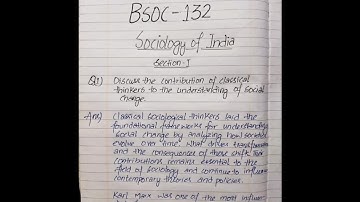 BSOC-132
Sociology of India
Section-I
Q1) Discuss the contribution of classical
thinkers to the understanding of social
change.
Ans) Classical sociological thinkers laid the
foundational frameworks for understanding
social change by analyzing how societies
evolve over time, what drives transformation
and the consequences of these shift. Their
contributions remains essential to the
field of sociology and continue to influence
contemporary theories and policies.
Karl Marx was one of the most influen